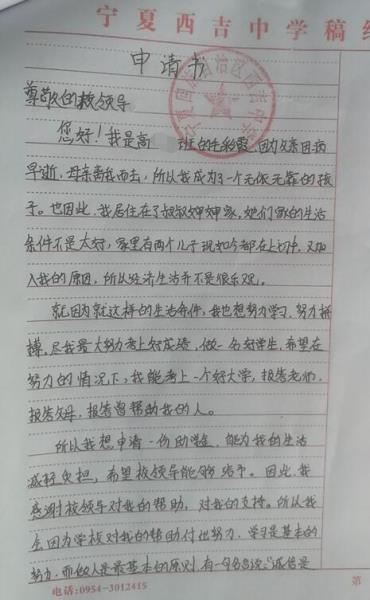 宁夏西吉中学稿纸
申请书
尊敬的校领导
您好!我是高 班的毛彩霞,因为父亲因病
早逝,母亲离我而去,所以我成为了一个无依无靠的孩
子。也因此,我居住在了叔叔婶婶家,她们家的生活
条件不是太好,家里有两个儿子现如今都在上初中,又加
入我的原因,所以经济生活并不是很乐观。
就因为就这样的生活条件,我也想努力学习,努力拼
搏,尽我最大努力考上好成绩,做一名好学生,希望在
努力的情况下,我能考上一个好大学,报答老师,
报答父母,报答曾帮助我的人。
所以我想申请一份助学金,能为我的生活
减轻负担,希望校领导能够给予。因此,我
感谢校领导对我的帮助,对我的支持。所以我
生因为学校对我的帮助付出努力,学习是基本的
努力,而做人是最基本的原则,有一句名言说:"诚信是
电话:0954-3012415
第